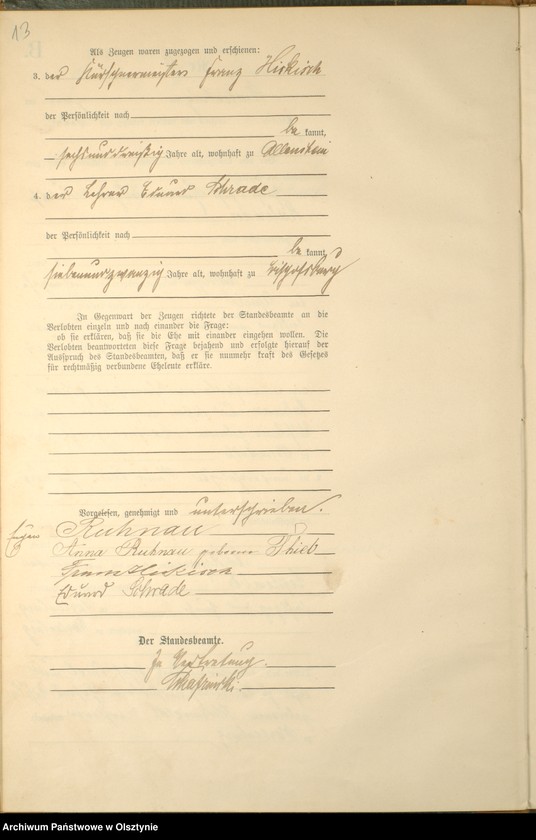 13
Als Zeugen waren zugezogen und erschienen:
3. der Kürschnermeister Franz Hiekisch
der Persönlichkeit nach
be kannt,
sechsunddreißig Jahre alt, wohnhaft zu Allenstein
4. der Lehrer Eduard Schrade
der Persönlichkeit nach
be kannt,
siebenundzwanzig Jahre alt, wohnhaft zu Bischofsburg
In Gegenwart der Zeugen richtete der Standesbeamte an die
Verlobten einzeln und nach einander die Frage:
ob sie erklären, daß sie die Ehe mit einander eingehen wollen. Die
Verlobten beantworteten diese Frage bejahend und erfolgte hierauf der
Ausspruch des Standesbeamten, daß er sie nunmehr kraft des Gesetzes
für rechtmäßig verbundene Eheleute erkläre.
Vorgelesen, genehmigt und unterschrieben.
Eugen Ruhnau
Anna Ruhnau geborene Thiel
Franz Hiekisch
Eduard Schrade
Der Standesbeamte.
In Vertretung.
Archiwum Państwowe w Olsztynie